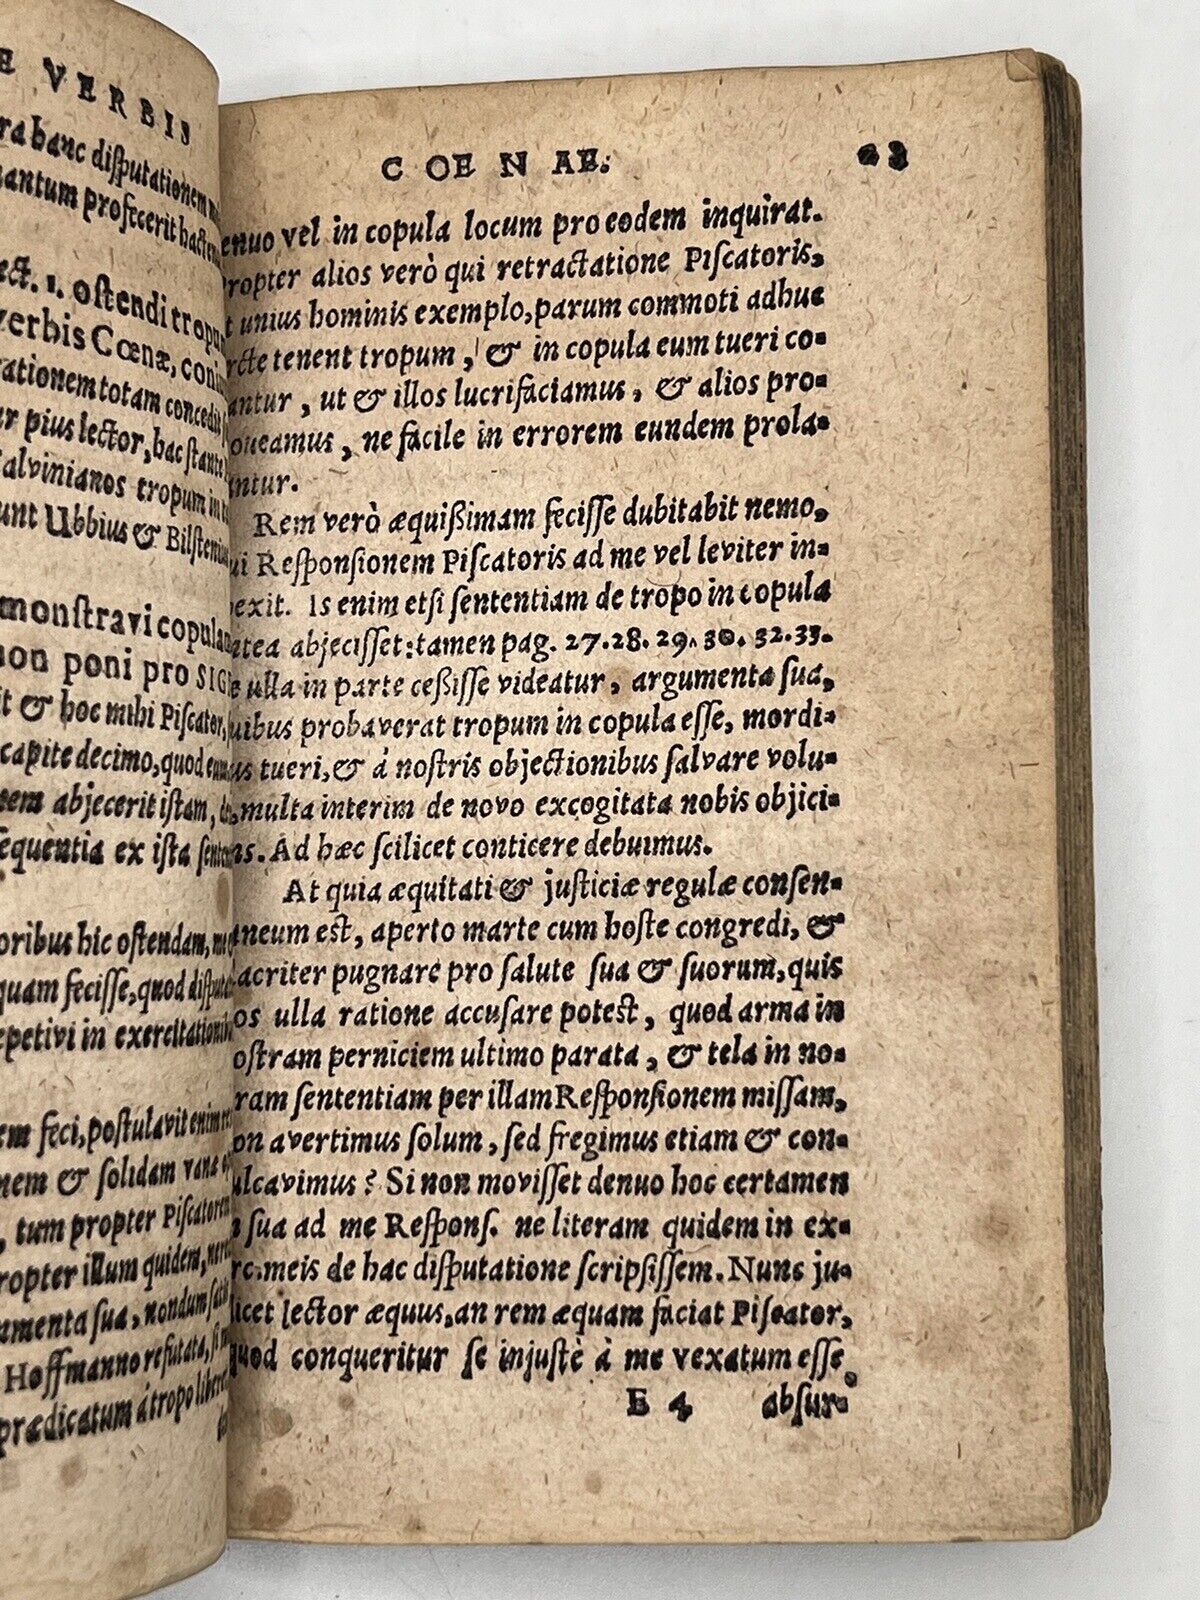 E VERBIS
ra hanc disputationem
uantum profecerit hacten
ect. 1. ostendi tropum
verbis Cœnæ,
rationem totam concedit
r pius lector, hac stante
alvinianos tropum in
unt Ubbius & Bilstenius
monstravi copulam
non poni pro SIG
it & hoc mihi Piscator,
capite decimo, quod eum
nem abjecerit istam,
sequentia ex ista senten
oribus hic ostendam,
quam fecisse, quod disput
epetivi in exercitationib
em feci, postulavit enim
nem & solidam
, tum propter Piscatorem
ropter illum quidem,
umenta sua, nondum satis
Hoffmanno refutata,
prædicatum à tropo liber
COENAE. 23
enuo vel in copula locum pro eodem inquirat.
Propter alios verò qui retractatione Piscatoris,
t unius hominis exemplo, parum commoti adhuc
rcte tenent tropum, & in copula eum tueri co-
antur, ut & illos lucrifaciamus, & alios pro-
oveamus, ne facile in errorem eundem prola-
antur.
Rem verò æquißimam fecisse dubitabit nemo,
ui Responsionem Piscatoris ad me vel leviter in-
pexit. Is enim etsi sententiam de tropo in copula
etea abjecisset: tamen pag. 27. 28. 29. 30. 32. 33.
e ulla in parte ceßisse videatur, argumenta sua,
uibus probaverat tropum in copula esse, mordi-
us tueri, & à nostris objectionibus salvare volu-
, multa interim de novo excogitata nobis objici-
ns. Ad hæc scilicet conticere debuimus.
At quia æquitati & justiciæ regulæ consen-
aneum est, aperto marte cum hoste congredi, &
acriter pugnare pro salute sua & suorum, quis
os ulla ratione accusare potest, quod arma in
ostram perniciem ultimo parata, & tela in no-
ram sententiam per illam Responsionem missam,
on avertimus solum, sed fregimus etiam & con-
ulcavimus? Si non movisset denuo hoc certamen
n sua ad me Respons. ne literam quidem in ex-
rc. meis de hac disputatione scripsissem. Nunc ju-
icet lector æquus, an rem æquam faciat Piscator,
quod conqueritur se injustè à me vexatum esse.
E 4 absur-